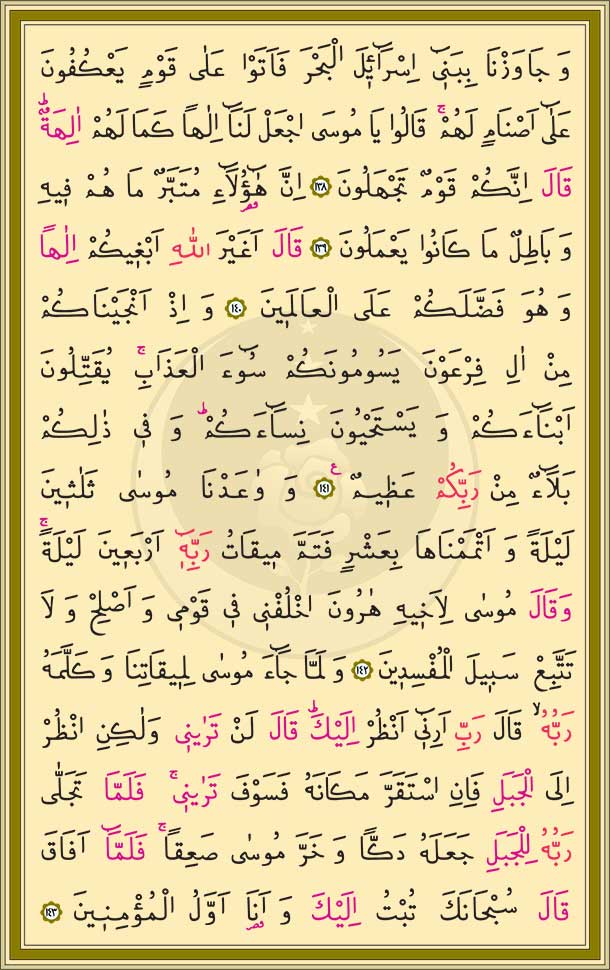 وَ جَاوَزْنَا بِبَنٖٓي اِسْرَٓائٖلَ الْبَحْرَ فَاَتَوْا عَلٰى قَوْمٍ يَعْكُفُونَ
عَلٰٓى اَصْنَامٍ لَهُمْۚ قَالُوا يَا مُوسَى اجْعَلْ لَنَٓا اِلٰهًا كَمَا لَهُمْ اٰلِهَةٌؕ
قَالَ اِنَّكُمْ قَوْمٌ تَجْهَلُونَ ﴿١٣٨﴾ اِنَّ هٰٓؤُ۬لَٓاءِ مُتَبَّرٌ مَا هُمْ فٖيهِ
وَ بَاطِلٌ مَا كَانُوا يَعْمَلُونَ ﴿١٣٩﴾ قَالَ اَغَيْرَ اللّٰهِ اَبْغٖيكُمْ اِلٰهًا
وَ هُوَ فَضَّلَكُمْ عَلَى الْعَالَمٖينَ ﴿١٤٠﴾ وَ اِذْ اَنْجَيْنَاكُمْ
مِنْ اٰلِ فِرْعَوْنَ يَسُومُونَكُمْ سُٓوءَ الْعَذَابِۚ يُقَتِّلُونَ
اَبْنَٓاءَكُمْ وَ يَسْتَحْيُونَ نِسَٓاءَكُمْؕ وَ فٖى ذٰلِكُمْ
بَلَٓاءٌ مِنْ رَبِّكُمْ عَظٖيمٌ ﴿١٤١﴾ ع وَ وٰعَدْنَا مُوسٰى ثَلٰثٖينَ
لَيْلَةً وَ اَتْمَمْنَاهَا بِعَشْرٍ فَتَمَّ مٖيقَاتُ رَبِّهٖٓ اَرْبَعٖينَ لَيْلَةًۚ
وَقَالَ مُوسٰى لِاَخٖيهِ هٰرُونَ اخْلُفْنٖى فٖى قَوْمٖى وَ اَصْلِحْ وَ لَا
تَتَّبِعْ سَبٖيلَ الْمُفْسِدٖينَ ﴿١٤٢﴾ وَ لَمَّا جَٓاءَ مُوسٰى لِمٖيقَاتِنَا وَ كَلَّمَهُ
رَبُّهُۙ قَالَ رَبِّ اَرِنٖٓى اَنْظُرْ اِلَيْكَؕ قَالَ لَنْ تَرٰينٖى وَلٰكِنِ انْظُرْ
اِلَى الْجَبَلِ فَاِنِ اسْتَقَرَّ مَكَانَهُ فَسَوْفَ تَرٰينٖىۚ فَلَمَّا تَجَلّٰى
رَبُّهُ لِلْجَبَلِ جَعَلَهُ دَكًّا وَ خَرَّ مُوسٰى صَعِقًاۚ فَلَمَّٓا اَفَاقَ
قَالَ سُبْحَانَكَ تُبْتُ اِلَيْكَ وَ اَنَا۬ اَوَّلُ الْمُؤْمِنٖينَ ﴿١٤٣﴾